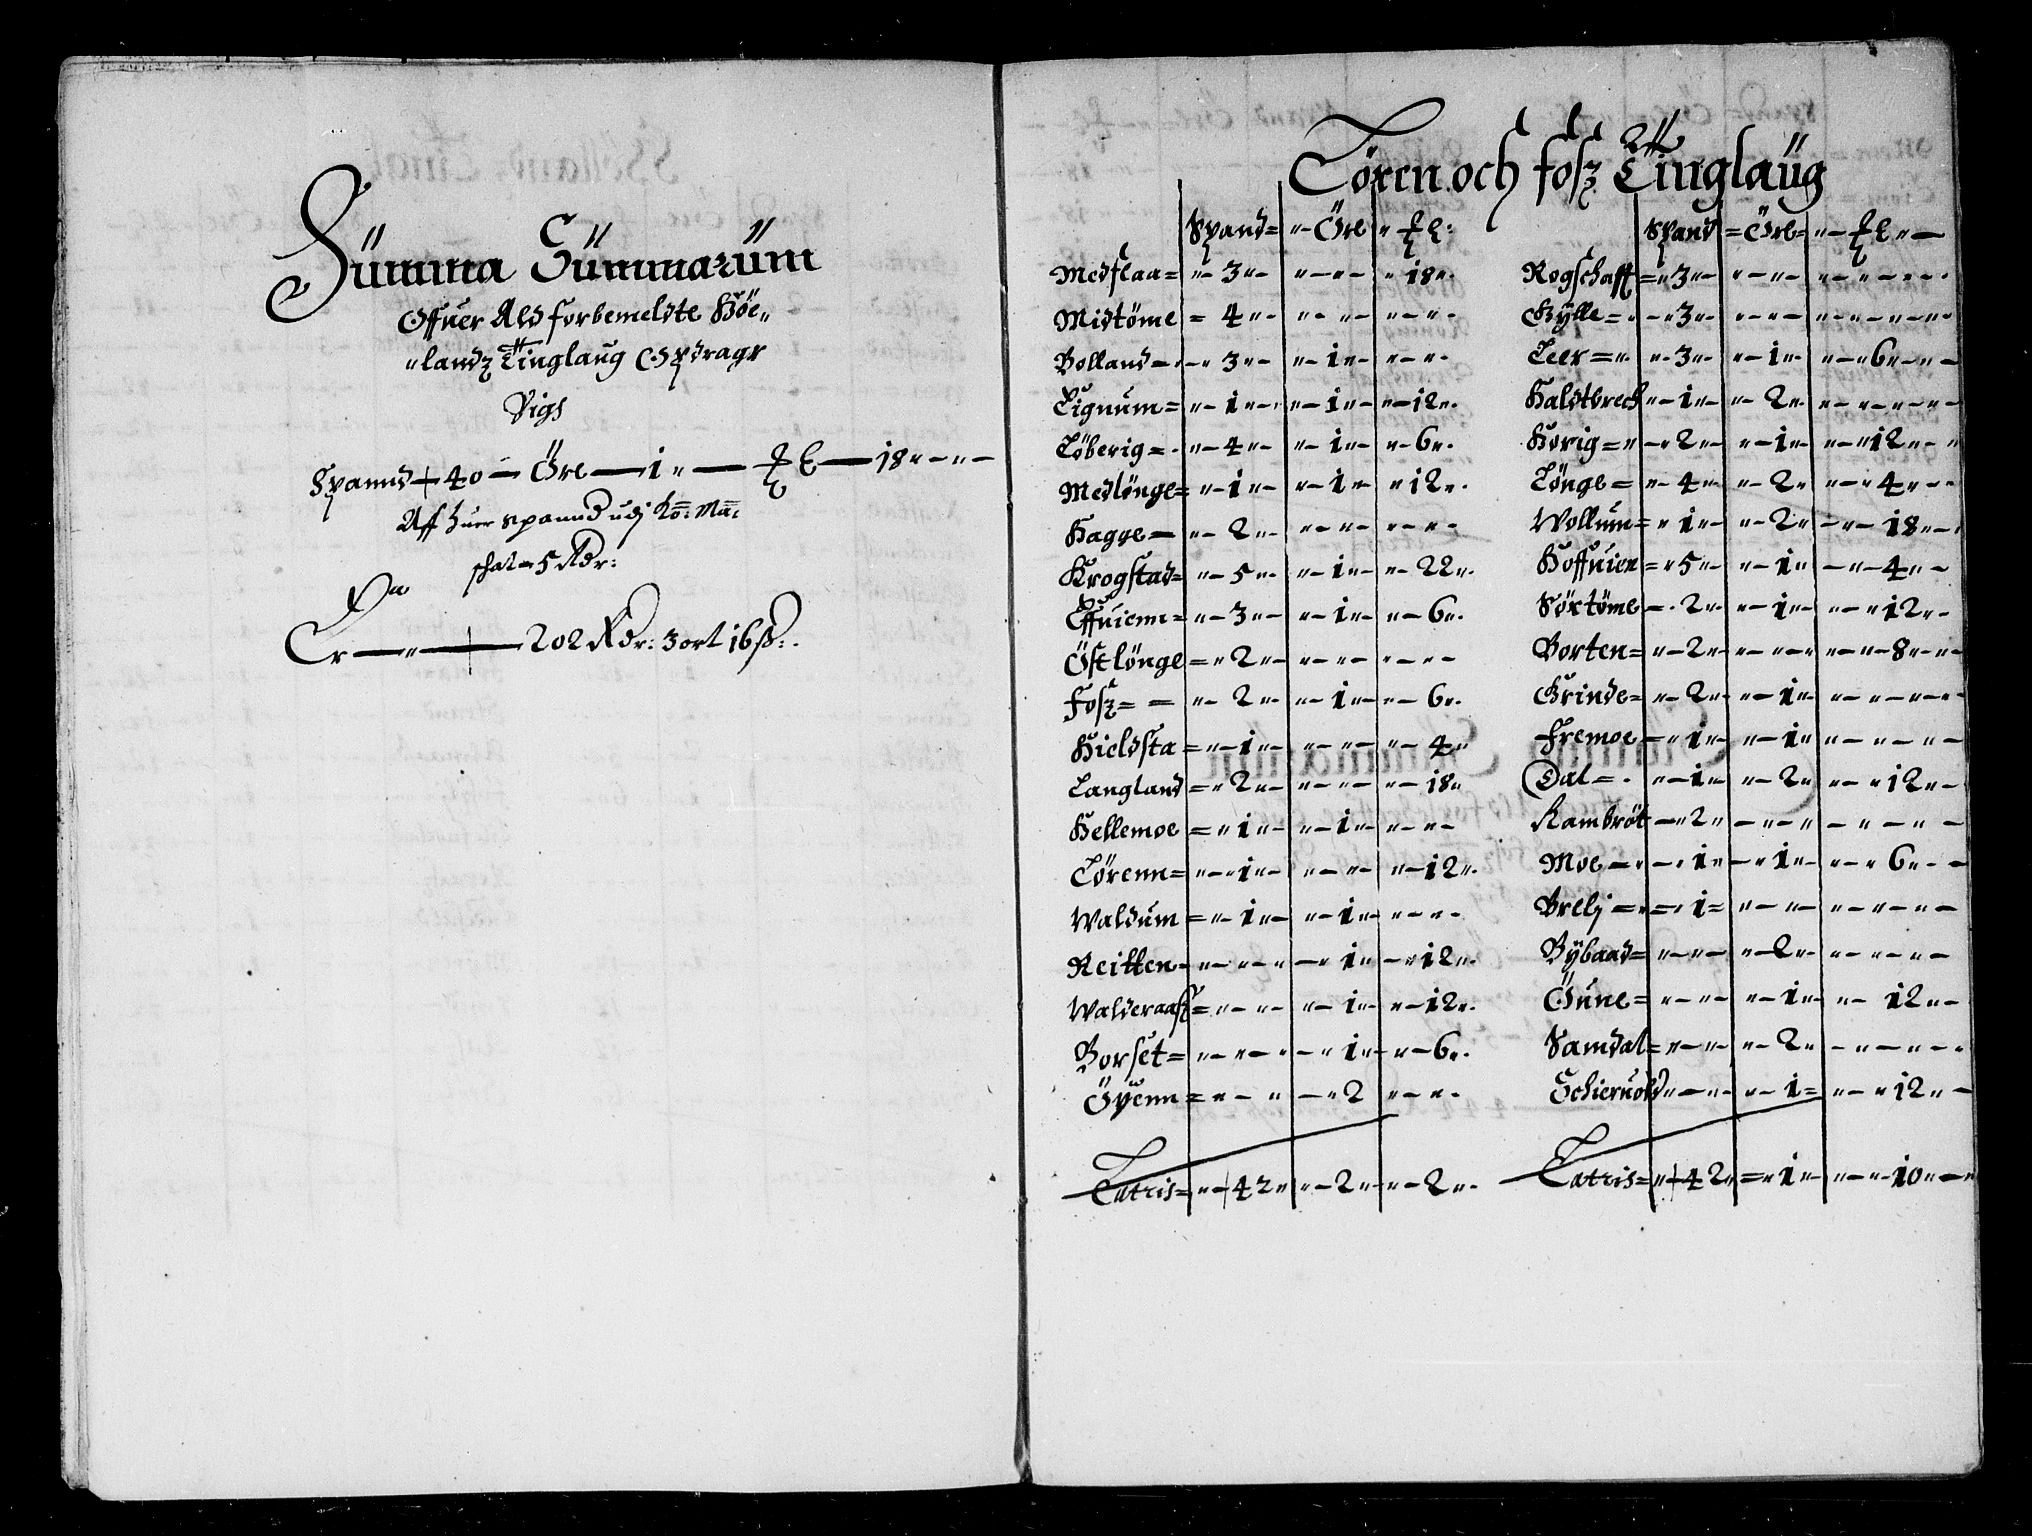 Summa Summarum
Offuer Ald forbemeldte Höe„
„landz Tinglaug Opdragr
Vigs
Spannd 40 — Öre — 1 „ — — 18 „ — „ —
Aff huer spannd udj Ko: Ma:
schat — 5 Rdr:
Er — „ — 202 Rdr: 3 ort 16 ß:.
Lören och fosz Tinglaug
Spand = „ Öre „
Medflaa = „ — 3 „ — „ — „ — „ 18 „.
Midtöme = 4 „ — „ — „ — „
Volland — „ 3 „ — „ — 1 „ — „ — „
Lignum = „ — 1 „ — „ — 1 „ — „ — 12 „.
Löberig = „ — 4 „ — „ — 1 „ — „ — 6 „.
Medlönge = „ — 1 „ — „ — 1 „ — „ 12 „.
Hagge — „ — 2 „ — „ — „ — „ — „
Krogstad = „ — 5 „ — „ — 1 „ — „ — 22 „.
Effuienn = „ — 3 „ — „ — 1 „ — „ — 6 „.
Östlönge = „ 2 „ — „ — „ — „ — „
Fosz = = „ — 2 „ — „ — 1 „ — „ — 6 „.
Hieldsta = „ — 1 „ — „ — „ — „ — 4 „
Langland = „ 2 „ — „ — „ — „ — 18 „
Hellemoe = „ 1 „ — „ — 1 „ — „ — „ —
Lörenn = „ — „ 1 „ — „ — „ — „ — 12 „.
Waldum = „ — 1 „ — „ — 1 „ — „ — „
Reitten — „ — „ — „ — „ 1 „ — „ 12 „.
Walderaasz = „ — „ — „ — 1 „ — „ — 12 „.
Borset = „ — „ — „ — „ 1 „ — „ — 6 „.
Öyenn = „ — „ — „ 2 „ — „
Latris = „ — 42 „ „ — 2 „ — „ — 2 „.
Spand = Öre = „ —
Rogschafft = „ 3 „ — „ — „ — „ — „
Gylle = „ — „ 3 „ — „ — „ — „ — „
Leer = „ „ — 3 „ — „ — 1 „ — „ — „ 6 „ —
Haldtbrech „ — 1 „ — „ — 2 „ — „ — „
Horig = „ — „ 2 „ — „ — 1 „ — „ — „ 12 „ —
Lönge = „ — 4 „ — „ — 2 „ „ — „ 4 „ —
Wollum = „ 1 „ — „ — 2 „ — „ — 18 „ —
Hoffuien = „ 5 „ — „ — 1 „ — „ — 4 „ —
Sörtöme — „ 2 „ — „ — 1 „ — „ — „ 12 „ —
Vorten = „ — 2 „ — „ — „ — „ — 8 „ —
Grinde = „ — 2 „ — „ — 1 „ — „ — „
Fremoe = „ 1 „ — „ — 1 „ „ — „ —
Dal = „ — 1 „ — „ — 2 „ „ — „ 12 „ —
Kambröt — „ 2 „ — „ — „ — „ — „ —
Moe = „ — „ 1 „ — „ 1 „ — „ — „ 6 „ —
Brelj = „ — „ 1 = „ — „ — „ — „ —
Bybaad = „ — „ — „ — 2 „ „ — „ —
Öune = „ — „ — „ — 1 „ — „ — 12 „ —
Samdal = „ — „ — „ — 2 „ — „ — „
Schieruold „ — „ — „ — 1 = „ — „ 12 „ —
Latris = „ 42 „ = „ 1 „ — „ — „ 10 „ —